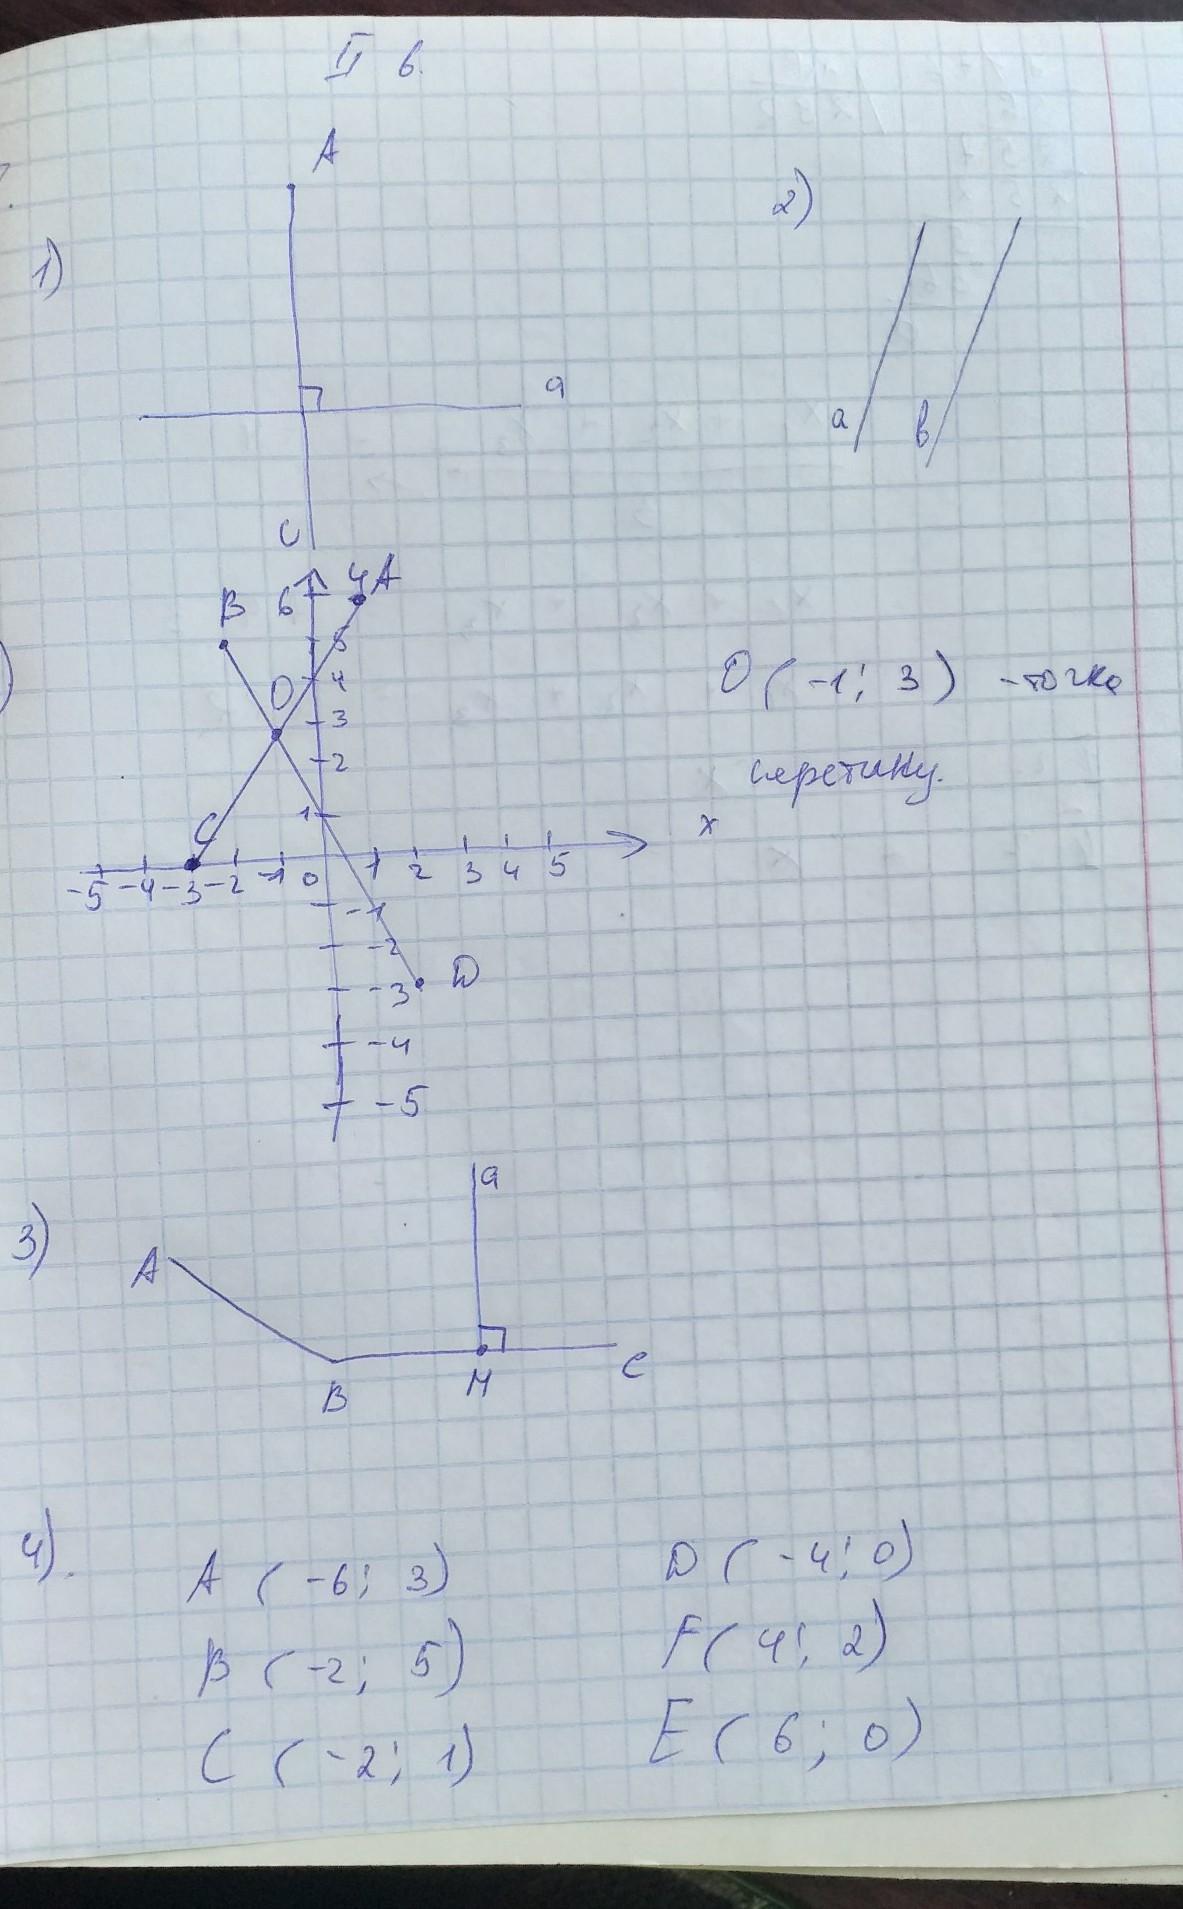 II в.
A
1)
2)
a
a в
C
B 6 y A
5
O 4
3
2
C 1 x
-5 -4 -3 -2 -1 0 1 2 3 4 5
-1
-2
-3 D
-4
-5
O (-1; 3) - точка
перетину.
3)
a
A
B M C
4).
A (-6; 3)
B (-2; 5)
C (-2; 1)
D (-4; 0)
F (4; 2)
E (6; 0)